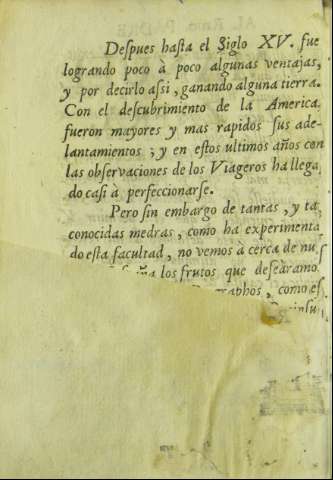 Despues hasta el Siglo XV. fue
logrando poco à poco algunas ventajas,
y por decirlo assi, ganando alguna tierra.
Con el descubrimiento de la America
fueron mayores y mas rapidos sus ade-
lantamientos; y en estos ultimos años con
las observaciones de los Viageros ha llega
do casi à perfeccionarse.
Pero sin embargo de tantas, y ta
conocidas medras, como ha experimenta
do esta facultad, no vemos à cerca de nu s
los frutos que deseàramo
graphos, como es